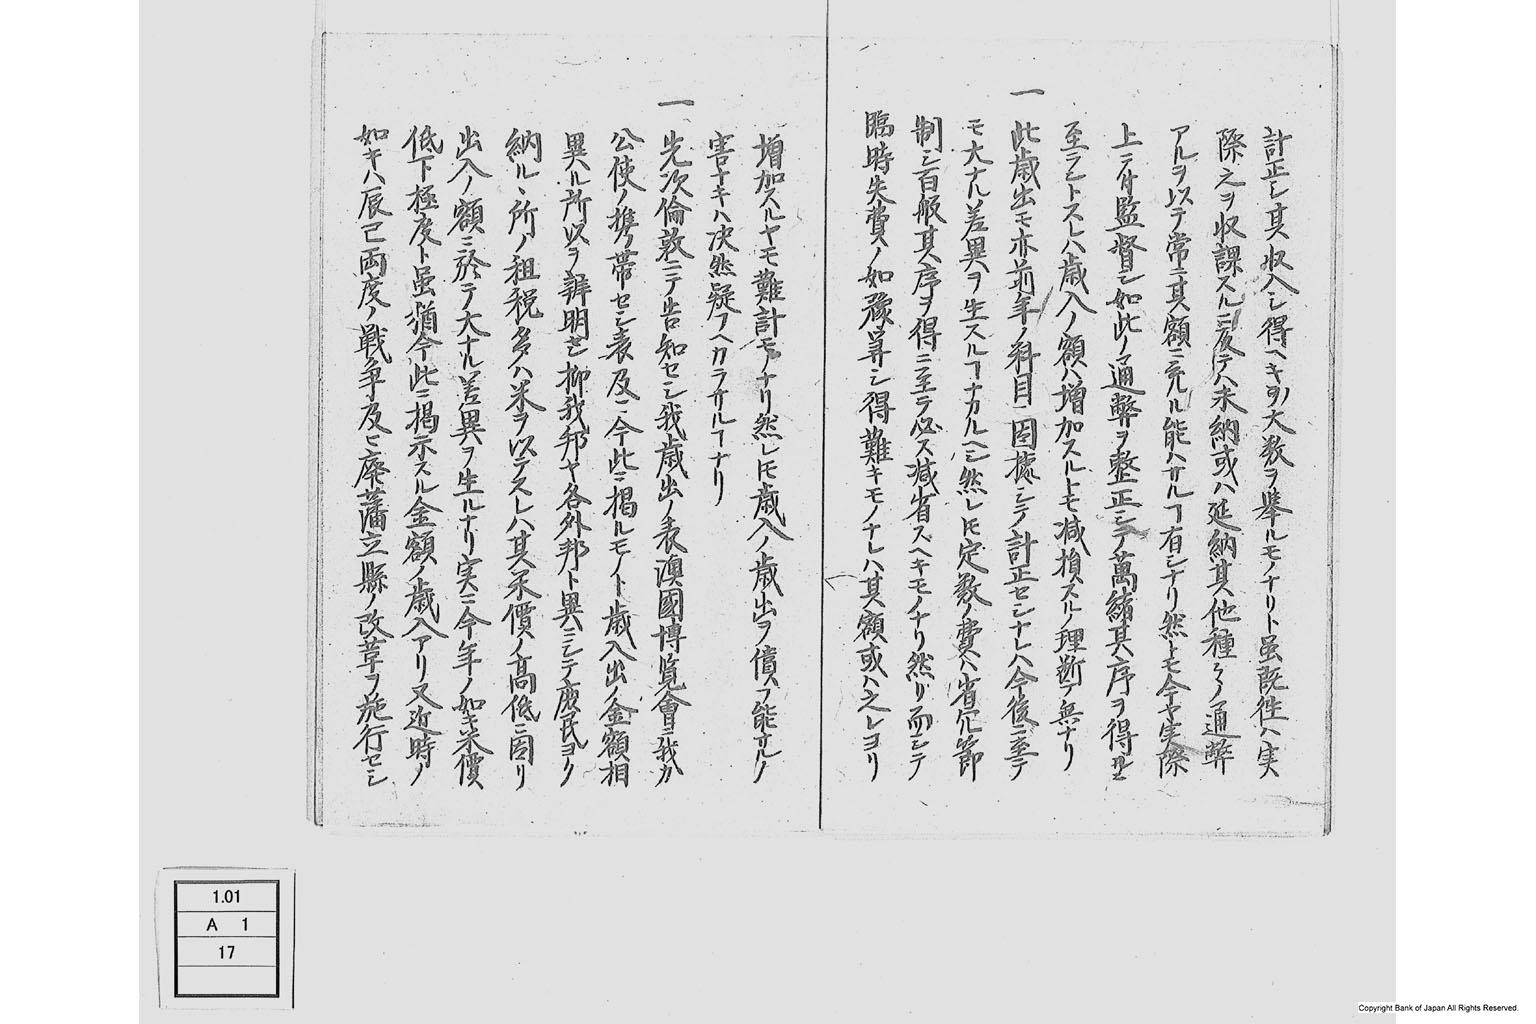 計正シ其収入シ得ヘキヲ大数ヲ舉ルモノナリト虽既往ハ実
際之ヲ収課スルニ及テハ未納或ハ延納其他種々ノ通弊
アルヲ以テ常ニ其額ニ充ル能ハサルヿ有シナリ然トモ今ヤ実際
上ニ付監督シ如此ノ通弊ヲ整正シテ萬緒其序ヲ得ルニ
至ラントスレハ歳入ノ額ハ増加スルトモ减損スルノ理断テ無ナリ
一
此歳出モ亦前年ノ科目ニ因據シテ計正セシナレハ今後ニ至テ
モ大ナル差異ヲ生スルヿナカルヘシ然レ𪜈定数ノ費ハ省冗節
制シ百般其序ヲ得ニ至テ必ス减省スヘキモノナリ然リ而シテ
臨時失費ノ如豫算シ得難キモノナレハ其額或ハ之レヨリ
増加スルヤモ難計モノナリ然レ𪜈歳入ノ歳出ヲ償フ能サルノ
害ナキハ决然疑フヘカラサルヿナリ
一
先次倫敦ニテ告知セシ我歳出ノ表澳國博覧會ニ我カ
公使ノ携帯セシ表及ニ今此ニ掲ルモノト歳入出ノ金額相
異ル所以ヲ辨明セン抑我邦ヤ各外邦ト異ニシテ庶民ヨリ
納ルヽ所ノ租税多ハ米ヲ以テスレハ其米價ノ高低ニ因リ
出入ノ額ニ於テ大ナル差異ヲ生ルナリ実ニ今年ノ如キ米價
低下極度ト虽猶今此ニ掲示スル金額ノ歳入アリ又近時ノ
如キハ辰巳両度ノ戦争及ヒ廃藩立縣ノ改革ヲ施行セシ
1.01
A 1
17
Copyright Bank of Japan All Rights Reserved.